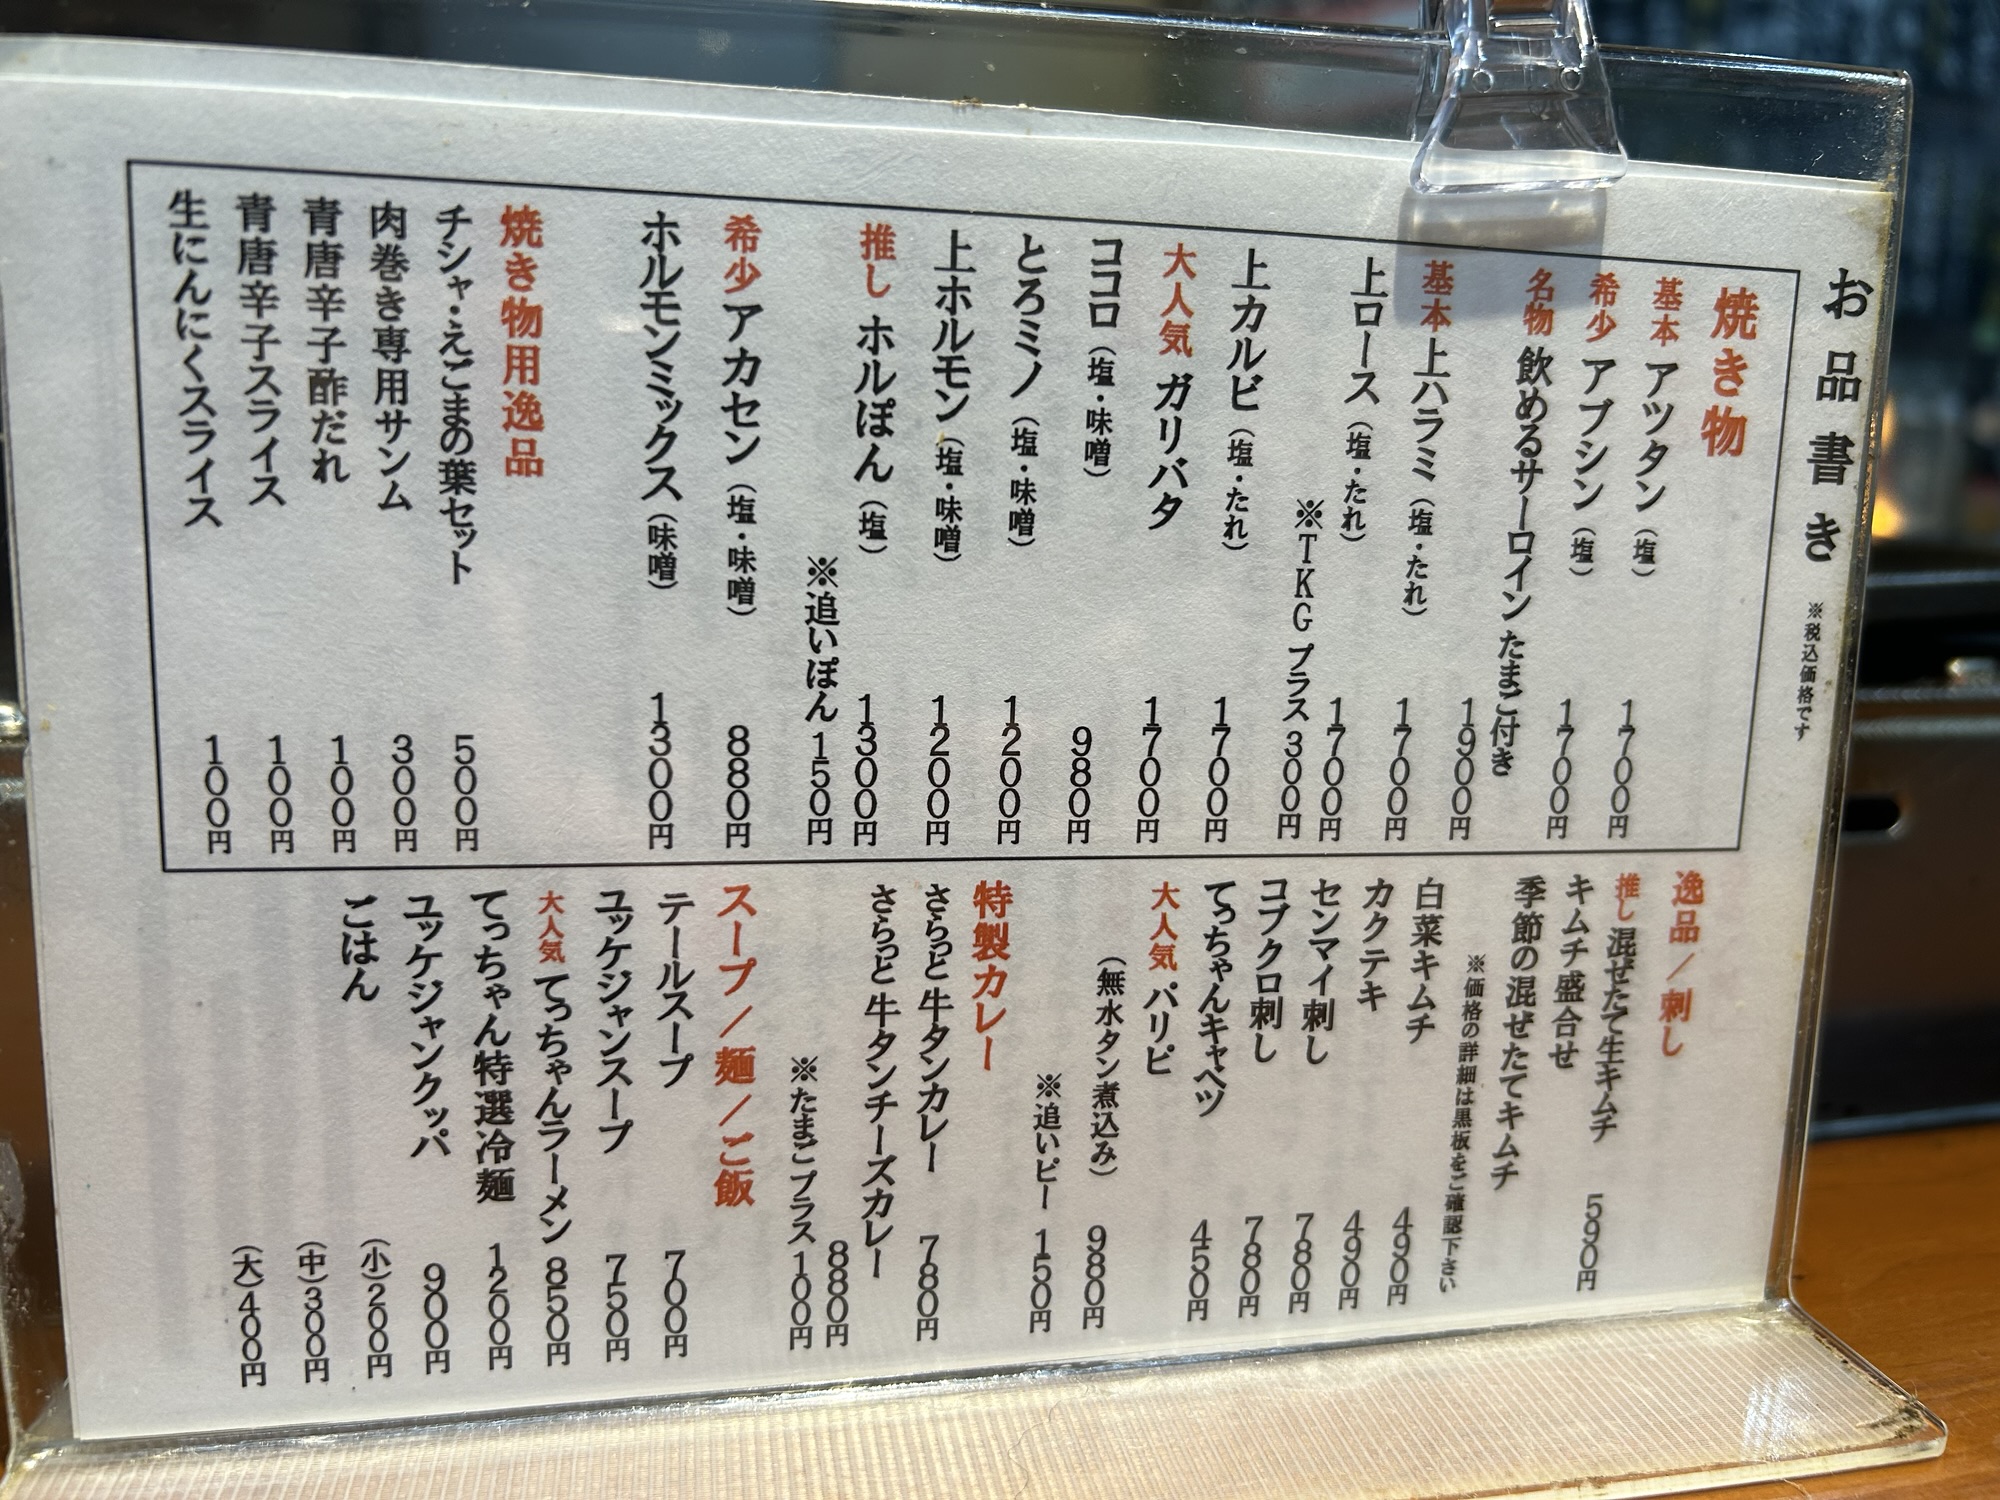 お品書き ※税込価格です
焼き物
基本 アツタン（塩） 1700円
希少 アブシン（塩） 1700円
名物 飲めるサーロイン たまご付き
1900円
基本 上ハラミ（塩・たれ） 1700円
上ロース（塩・たれ） 1700円
※TKGプラス 300円
上カルビ（塩・たれ） 1700円
大人気 ガリバタ 1700円
ココロ（塩・味噌） 980円
とろミノ（塩・味噌） 1200円
上ホルモン（塩・味噌） 1200円
推し ホルぽん（塩） 1300円
※追いぽん 150円
希少 アカセン（塩・味噌） 880円
ホルモンミックス（味噌） 1300円
焼き物用逸品
チシャ・えごまの葉セット 500円
肉巻き専用サンム 300円
青唐辛子酢だれ 100円
青唐辛子スライス 100円
生にんにくスライス 100円
逸品／刺し
推し 混ぜたて生キムチ
キムチ盛合せ 590円
季節の混ぜたてキムチ
※価格の詳細は黒板をご確認下さい
白菜キムチ 490円
カクテキ 490円
センマイ刺し 780円
コブクロ刺し 780円
てっちゃんキャベツ 450円
大人気 パリピ
（無水タン煮込み） 980円
※追いピー 150円
特製カレー
さらっと 牛タンカレー 780円
さらっと 牛タンチーズカレー
880円
※たまごプラス 100円
スープ／麺／ご飯
テールスープ 700円
ユッケジャンスープ 750円
大人気 てっちゃんラーメン 850円
てっちゃん特選冷麺 1200円
ユッケジャンクッパ 900円
ごはん （小）200円
（中）300円
（大）400円